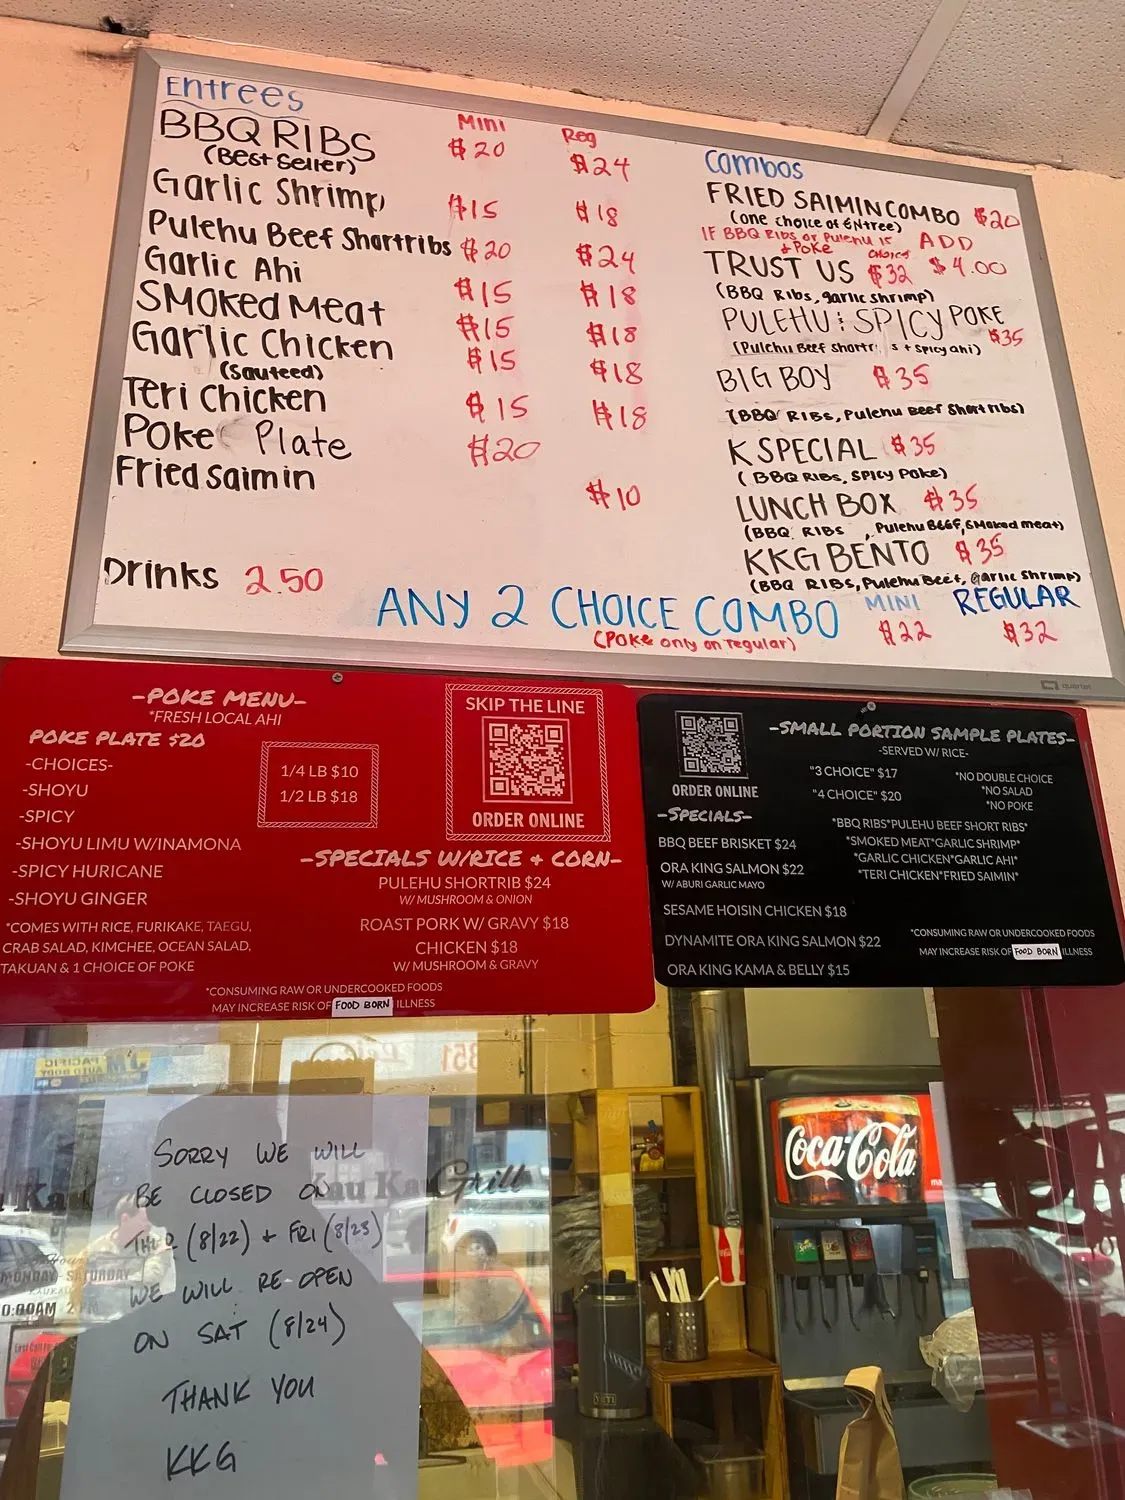 Entrees
Mini Reg
BBQ RIBS $20 $24
(Best Seller)
Garlic Shrimp $15 $18
Pulehu Beef Shortribs $20 $24
Garlic Ahi $15 $18
SMOKED MEAT $15 $18
Garlic Chicken $15 $18
(Sauteed)
Teri Chicken $15 $18
POKE Plate $20
Fried Saimin $10
Drinks 2.50
Combos
FRIED SAIMIN COMBO $20
(one choice of ENtree)
IF BBQ Ribs or Pulehu is ADD
& Poke CHOICE
$4.00
TRUST US $32
(BBQ Ribs, garlic shrimp)
PULEHU & SPICY POKE
$35
(Pulehu Beef Shortribs + Spicy ahi)
BIG BOY $35
(BBQ RIBS, Pulehu Beef Shortribs)
K SPECIAL $35
(BBQ RIBS, SPICY POKE)
LUNCH BOX $35
(BBQ RIBS , Pulehu BEEF, SMOKED meat)
KKG BENTO $35
(BBQ RIBS, Pulehu Beef, Garlic Shrimp)
ANY 2 CHOICE COMBO MINI REGULAR
$22 $32
(POKE only on regular)
-POKE MENU-
*FRESH LOCAL AHI
POKE PLATE $20
-CHOICES-
-SHOYU
-SPICY
-SHOYU LIMU W/INAMONA
-SPICY HURICANE
-SHOYU GINGER
*COMES WITH RICE, FURIKAKE, TAEGU,
CRAB SALAD, KIMCHEE, OCEAN SALAD,
TAKUAN & 1 CHOICE OF POKE
1/4 LB $10
1/2 LB $18
SKIP THE LINE
ORDER ONLINE
-SPECIALS W/RICE + CORN-
PULEHU SHORTRIB $24
W/ MUSHROOM & ONION
ROAST PORK W/ GRAVY $18
CHICKEN $18
W/ MUSHROOM & GRAVY
*CONSUMING RAW OR UNDERCOOKED FOODS
MAY INCREASE RISK OF FOOD BORN ILLNESS
ORDER ONLINE
-SPECIALS-
BBQ BEEF BRISKET $24
ORA KING SALMON $22
W/ ABURI GARLIC MAYO
SESAME HOISIN CHICKEN $18
DYNAMITE ORA KING SALMON $22
ORA KING KAMA & BELLY $15
-SMALL PORTION SAMPLE PLATES-
-SERVED W/ RICE-
"3 CHOICE" $17
"4 CHOICE" $20
*NO DOUBLE CHOICE
*NO SALAD
*NO POKE
*BBQ RIBS*PULEHU BEEF SHORT RIBS*
*SMOKED MEAT*GARLIC SHRIMP*
*GARLIC CHICKEN*GARLIC AHI*
*TERI CHICKEN*FRIED SAIMIN*
*CONSUMING RAW OR UNDERCOOKED FOODS
MAY INCREASE RISK OF FOOD BORN ILLNESS
SORRY WE WILL
BE CLOSED ON
THUR (8/22) + FRI (8/23)
WE WILL RE OPEN
ON SAT (8/24)
THANK YOU
KKG
Kau Kau Grill
MONDAY - SATURDAY
Coca-Cola